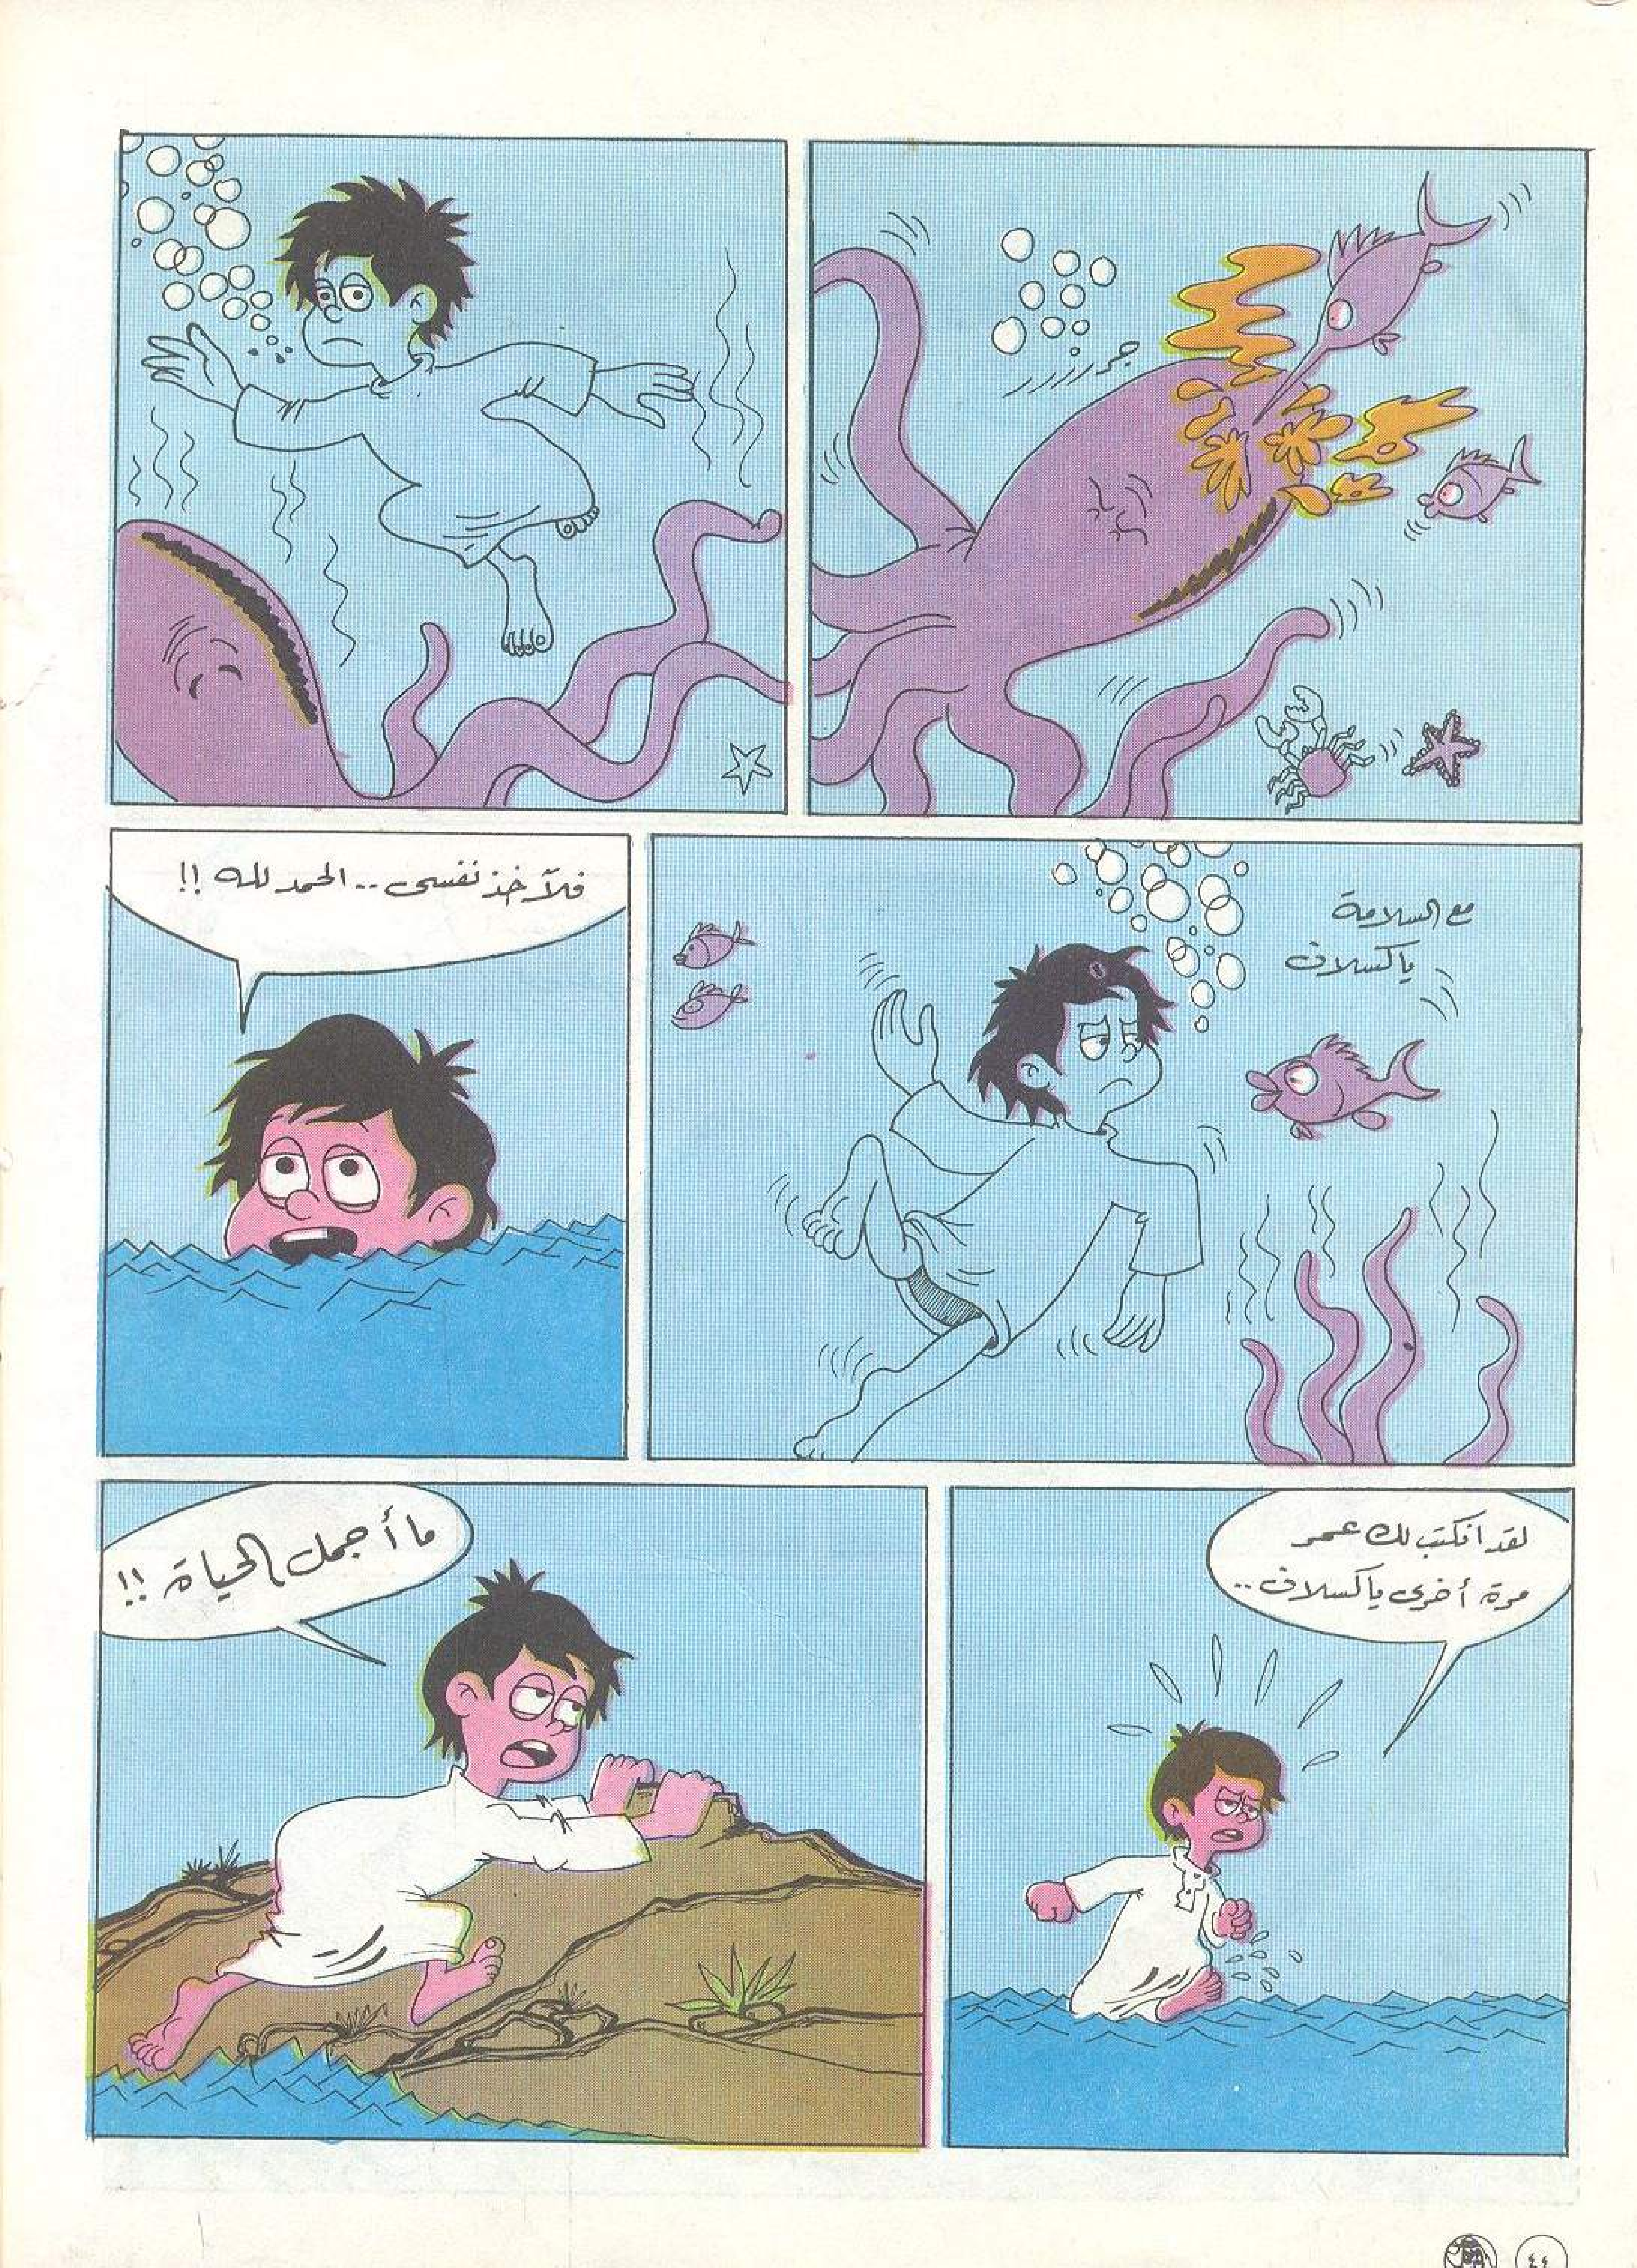 جررررر
مع السلامة
يا كسلان
فلآخذ نفسى .. الحمد لله !!
لقد انكتب لك عمر
مرة أخرى يا كسلان ..
ما أجمل الحياة !!
٤٤